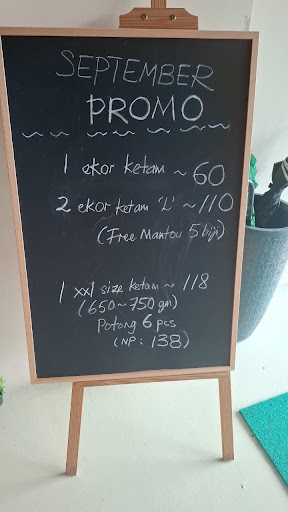 SEPTEMBER
PROMO
1 ekor ketam ~ 60
2 ekor ketam 'L' ~ 110
(Free Mantou 5 biji)
1 xxl size ketam ~ 118
(650~750 gm)
Potong 6 pcs
(NP: 138)